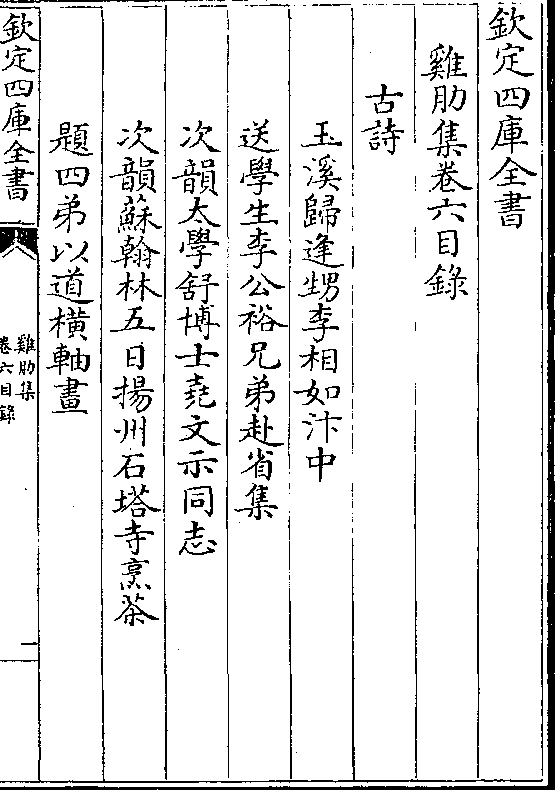 欽定四庫全書
雞肋集卷六目錄
古詩
玉溪歸逢甥李相如汴中
送學生李公裕兄弟赴省集
次韻太學舒博士堯文示同志
次韻蘇翰林五日揚州石塔寺烹茶
題四弟以道橫軸畫
欽定四庫全書
雞肋集
卷六目錄
一